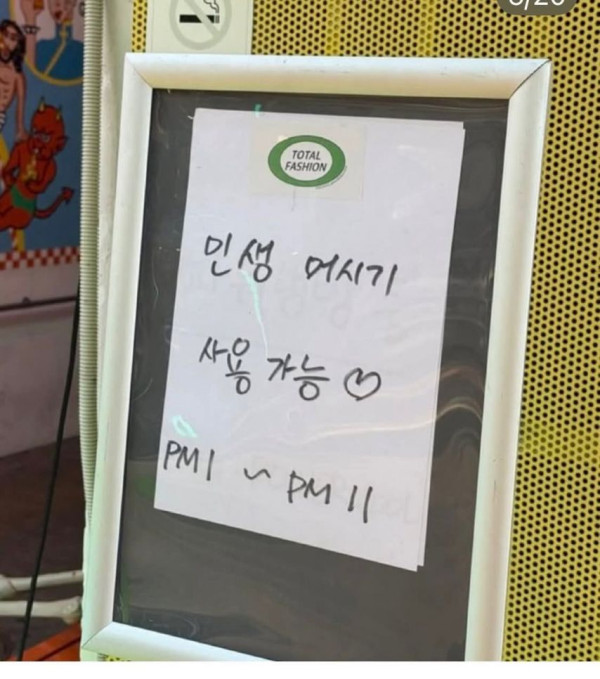 TOTAL
FASHION
민생 머시기
사용 가능 ♡
PM 1 ~ PM 11